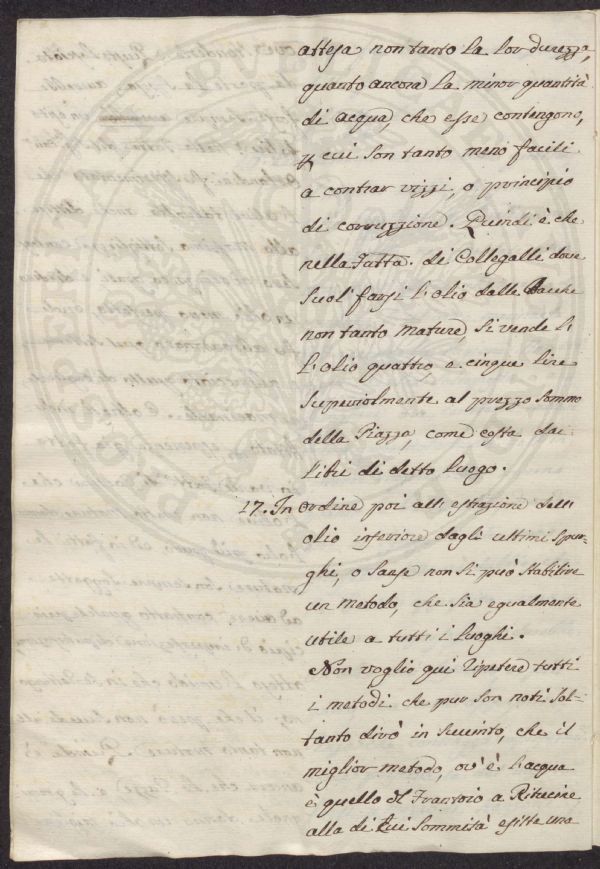 attesa non tanto la lor durezza,
quanto ancora la minor quantità
di acqua, che esse contengono,
p cui son tanto meno facili
a contrar vizzi, o principio
di corruzzione. Quindi è che
nella Fatta. di Collegalli dove
suol' farsi l'olio dalle Bacche
non tanto mature, si vende l'
l'olio quattro, e cinque lire
superiolmente al prezzo sommo
della Piazza, come costa dai
libri di detto luogo.
17. In ordine poi all' estrazione dell'
olio inferiore dagli ultimi spur-
ghi, o sanse non si può stabilire
un metodo, che sia egualmente
utile a tutti i luoghi.
Non voglio qui ripetere tutti
i metodi che pur son noti sol-
tanto dirò in succinto, che il
miglior metodo, ov' è l'acqua
è quello del Frantoio a Ritrecine
alla di cui sommità esiste una